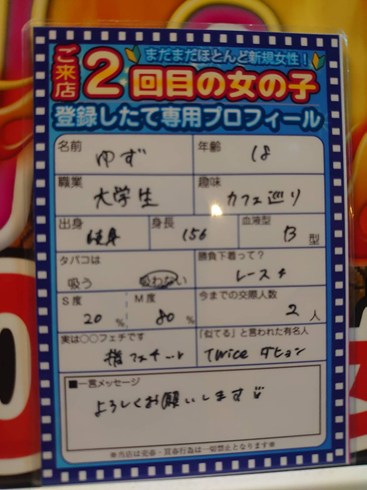 まだまだほとんど新規女性！
ご来店
2回目の女の子
登録したて専用プロフィール
名前 ゆず 年齢 18
職業 大学生 趣味 カフェ巡り
出身 身長 156 血液型 B型
タバコは 吸う 吸わない
勝負下着って？ レース
S度 20% M度 80%
今までの交際人数 2人
実は○○フェチです 指フェチ
「似てる」と言われた有名人 twice ダヒョン
■一言メッセージ
よろしくお願いします
※当店は売春・買春行為は一切禁止となります※